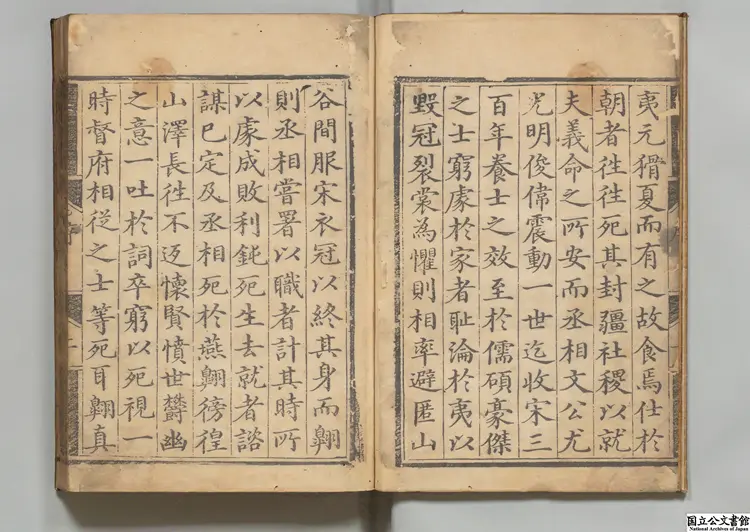 夷元猾夏而有之故食焉仕於
朝者徃徃死其封疆社稷以就
夫義命之所安而丞相文公尤
光明俊偉震動一世迄收宋三
百年養士之效至於儒碩豪傑
之士窮處於家者耻淪於夷以
毀冠裂裳為懼則相率避匿山
谷間服宋衣冠以終其身而翺
則丞相嘗署以職者計其時所
以處成敗利鈍死生去就者諮
謀已定及丞相死於燕翺徬徨
山澤長徃不返懷賢憤世欝幽
之意一吐於詞卒窮以死視一
時督府相從之士等死耳翺真
国立公文書館
National Archives of Japan